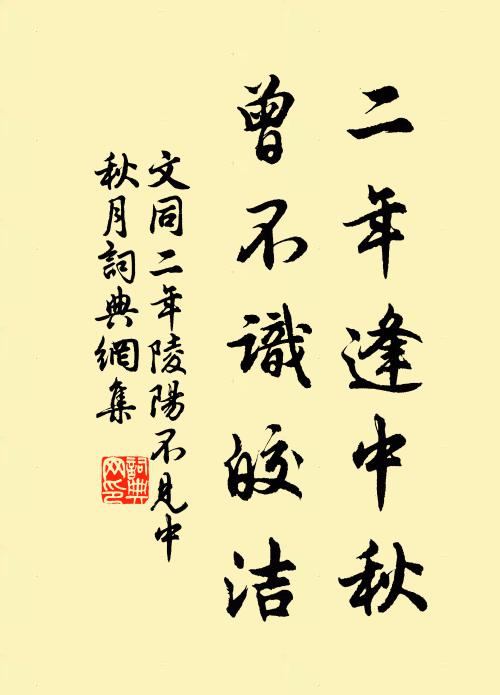 二年逢中秋
曾不識皎洁
文同二年陵陽不見中
秋月詞典網集
詞典
网印